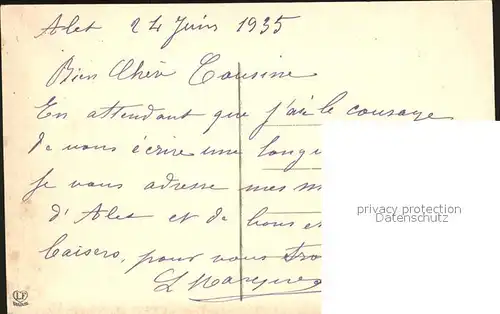 Alet 24 Juin 1935
Bien Chère Cousine
En attendant que j'aie le courage
de vous écrire une longu
Je vous adresse mes m
d'Alet et de bons et
baisers, pour vous tro
privacy protection
Datenschutz